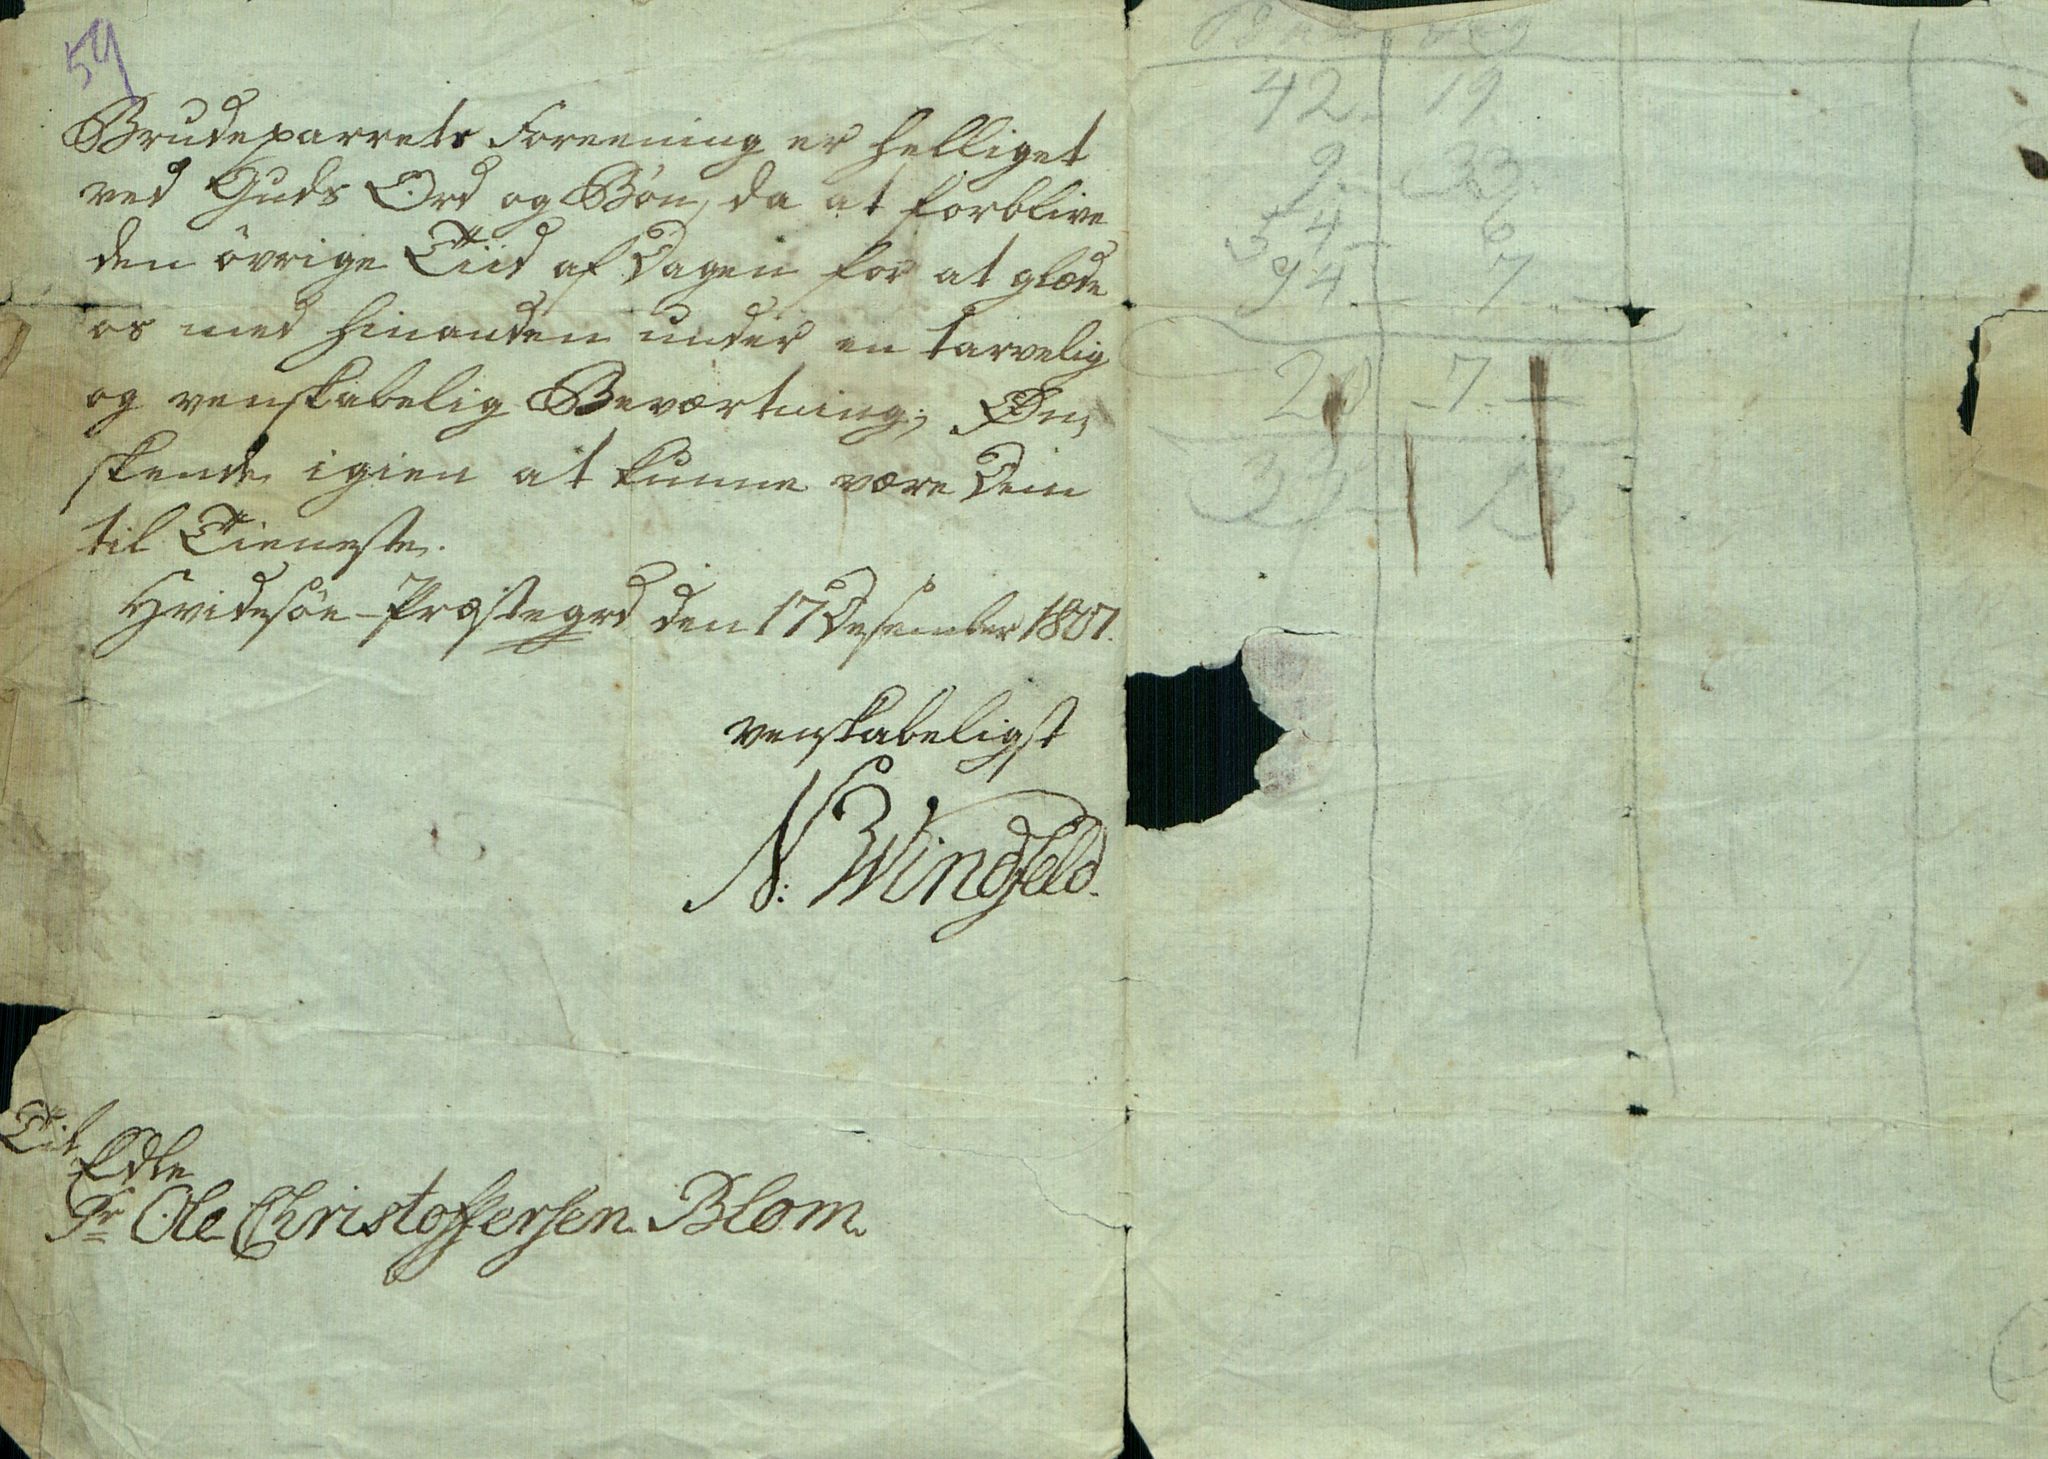 59
Brudeparrets Foreening er helliget
ved Guds Ord og Bön, da at forblive
den övrige Tiid af Dagen for at glæde
os med hinanden under en tarvelig
og venskabelig Beværtning; Øn,
skende igien at kunne være Dem
til Tieneste.
Hvidesöe-Præstegrd den 17 Desember 1807.
venskabeligst
N: Windfeld.
Til
Edle
Sr Ole Christoffersen Blom.
42 - 19
9 - 33
54 - 6
94 - 7
20 - 7